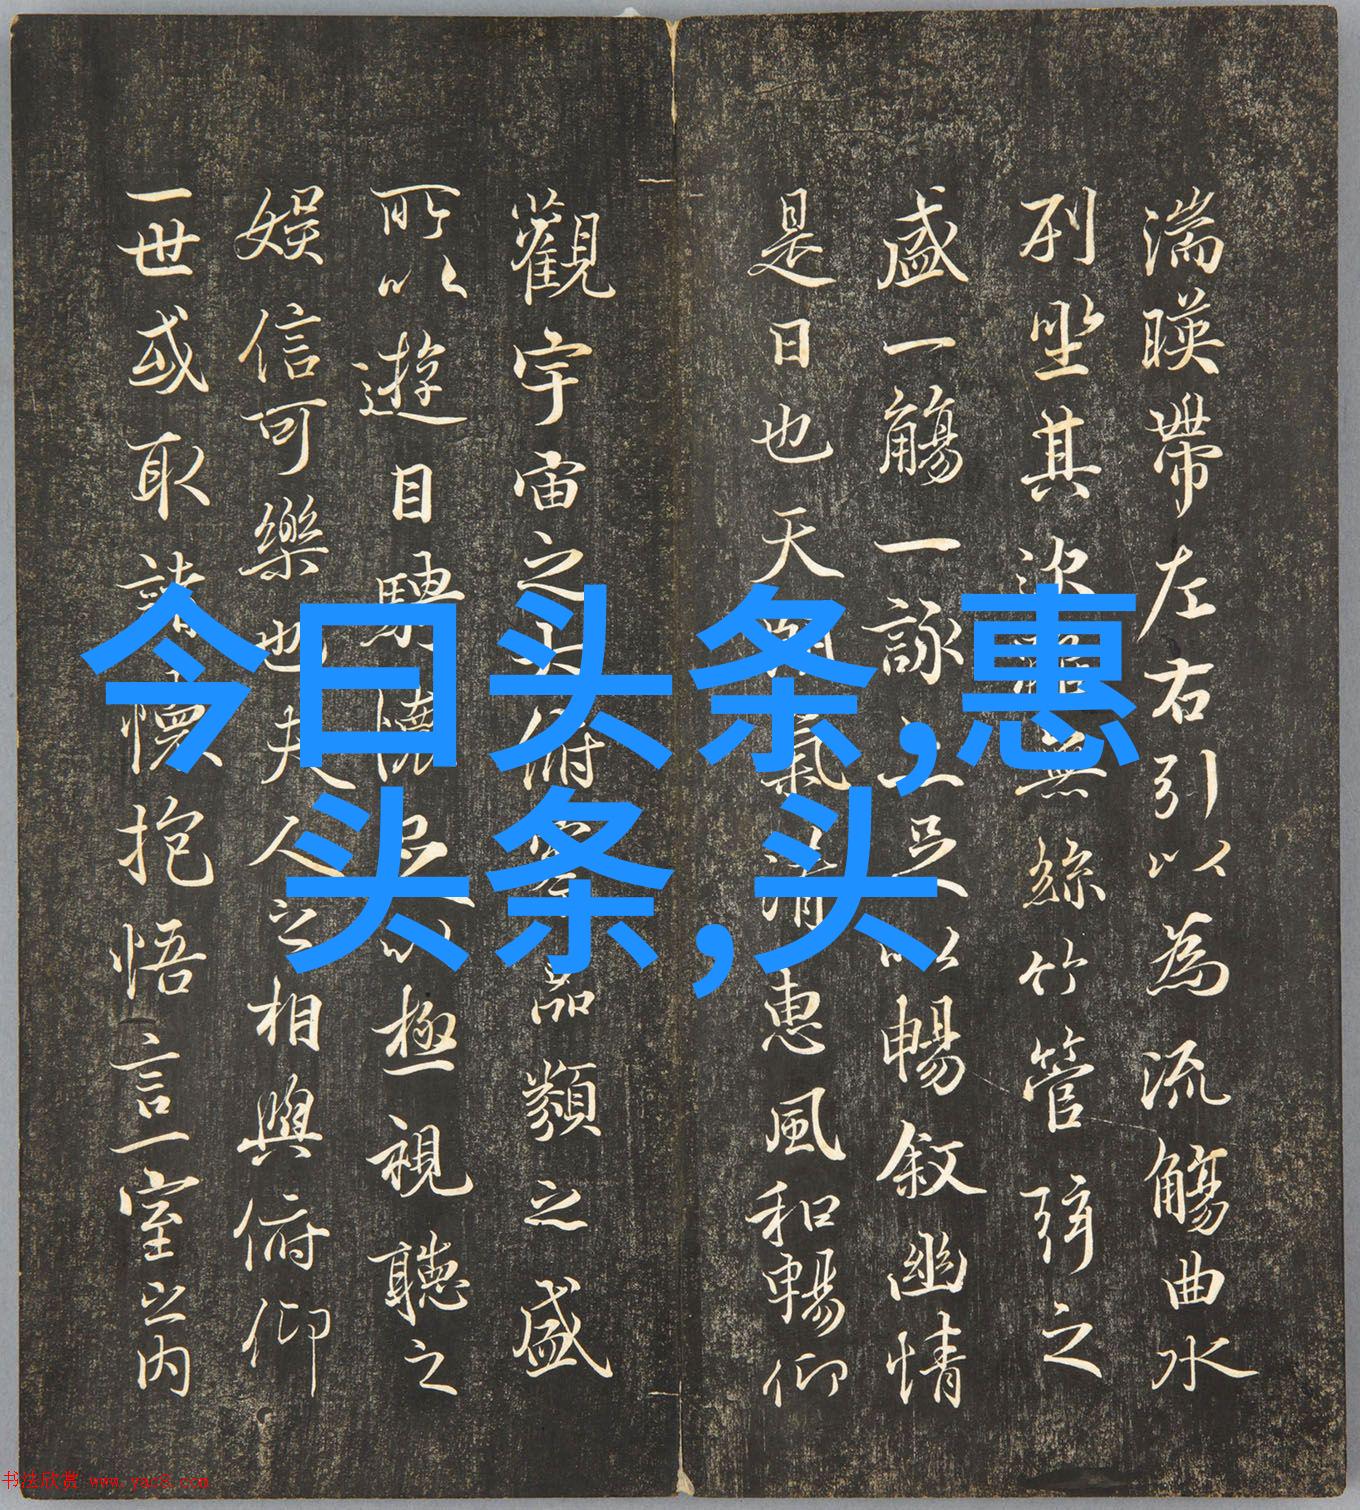 湍暎帶左右引以為流觴曲水
列坐其次雖無絲竹管弦之
盛一觴一詠亦足以暢敘幽情
是日也天朗氣清惠風和暢仰
觀宇宙之大俯察品類之盛
所以遊目騁懷足以極視聽之
娛信可樂也夫人之相與俯仰
一世或取諸懷抱悟言一室之内
今日头条,惠
头条,头
书法欣赏 www.yac8.com